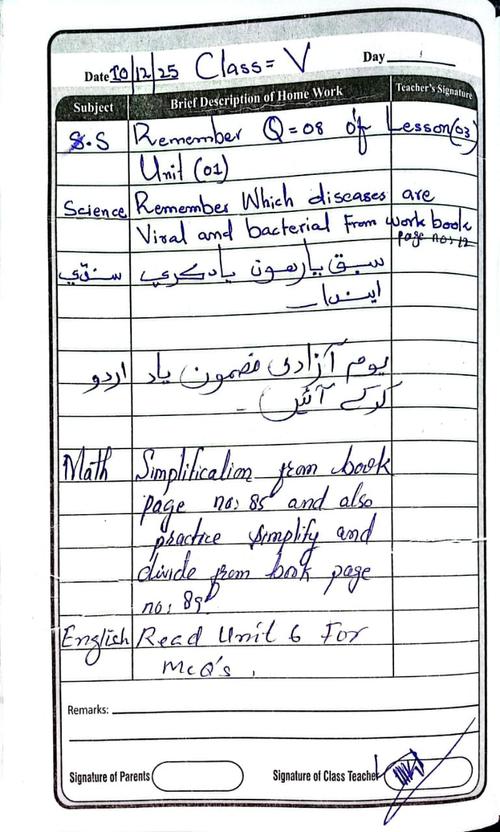 Date 10/12/25 Class= V Day
Subject Brief Description of Home Work Teacher's Signature
S.S Remember Q=08 of Lesson(03)
Unit (01)
Science Remember Which diseases are
Viral and bacterial From work book
page no: 12
سنڌي سبق يارهون ياد ڪري
ايندا۔
اردو یوم آزادی مضمون یاد
کرکے آئیں۔
Math Simplification from book
page no: 85 and also
practice simplify and
divide from book page
no: 89
English Read Unit 6 For
McQ's.
Remarks:
Signature of Parents Signature of Class Teacher